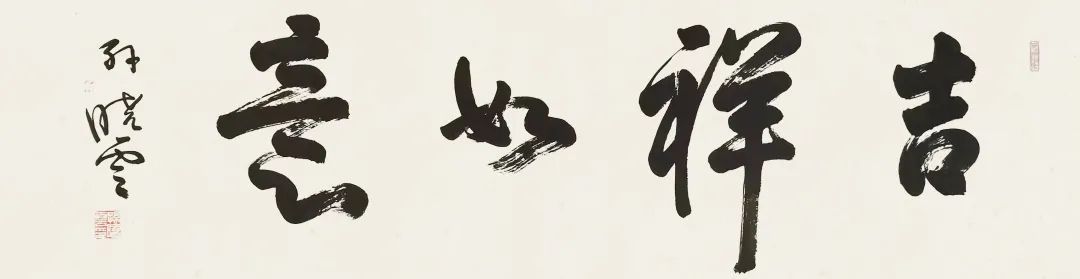 吉祥如意
孙晓云